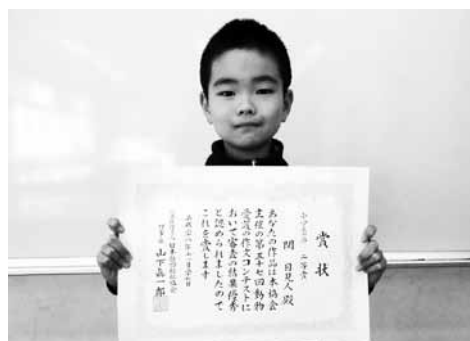 賞状
小学生の部 二等賞
関 日見人 殿
あなたの作品は本協会
主催の第五十七回動物
愛護の作文コンテストに
おいて審査の結果優秀
と認められましたので
これを賞します
日本動物愛護協会
理事長 山下喜一郎